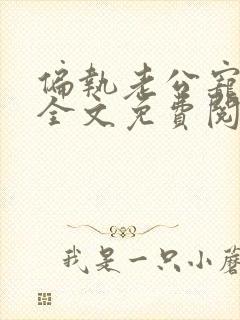 偏執老公寵
全文免費閱
我是一只小蘑